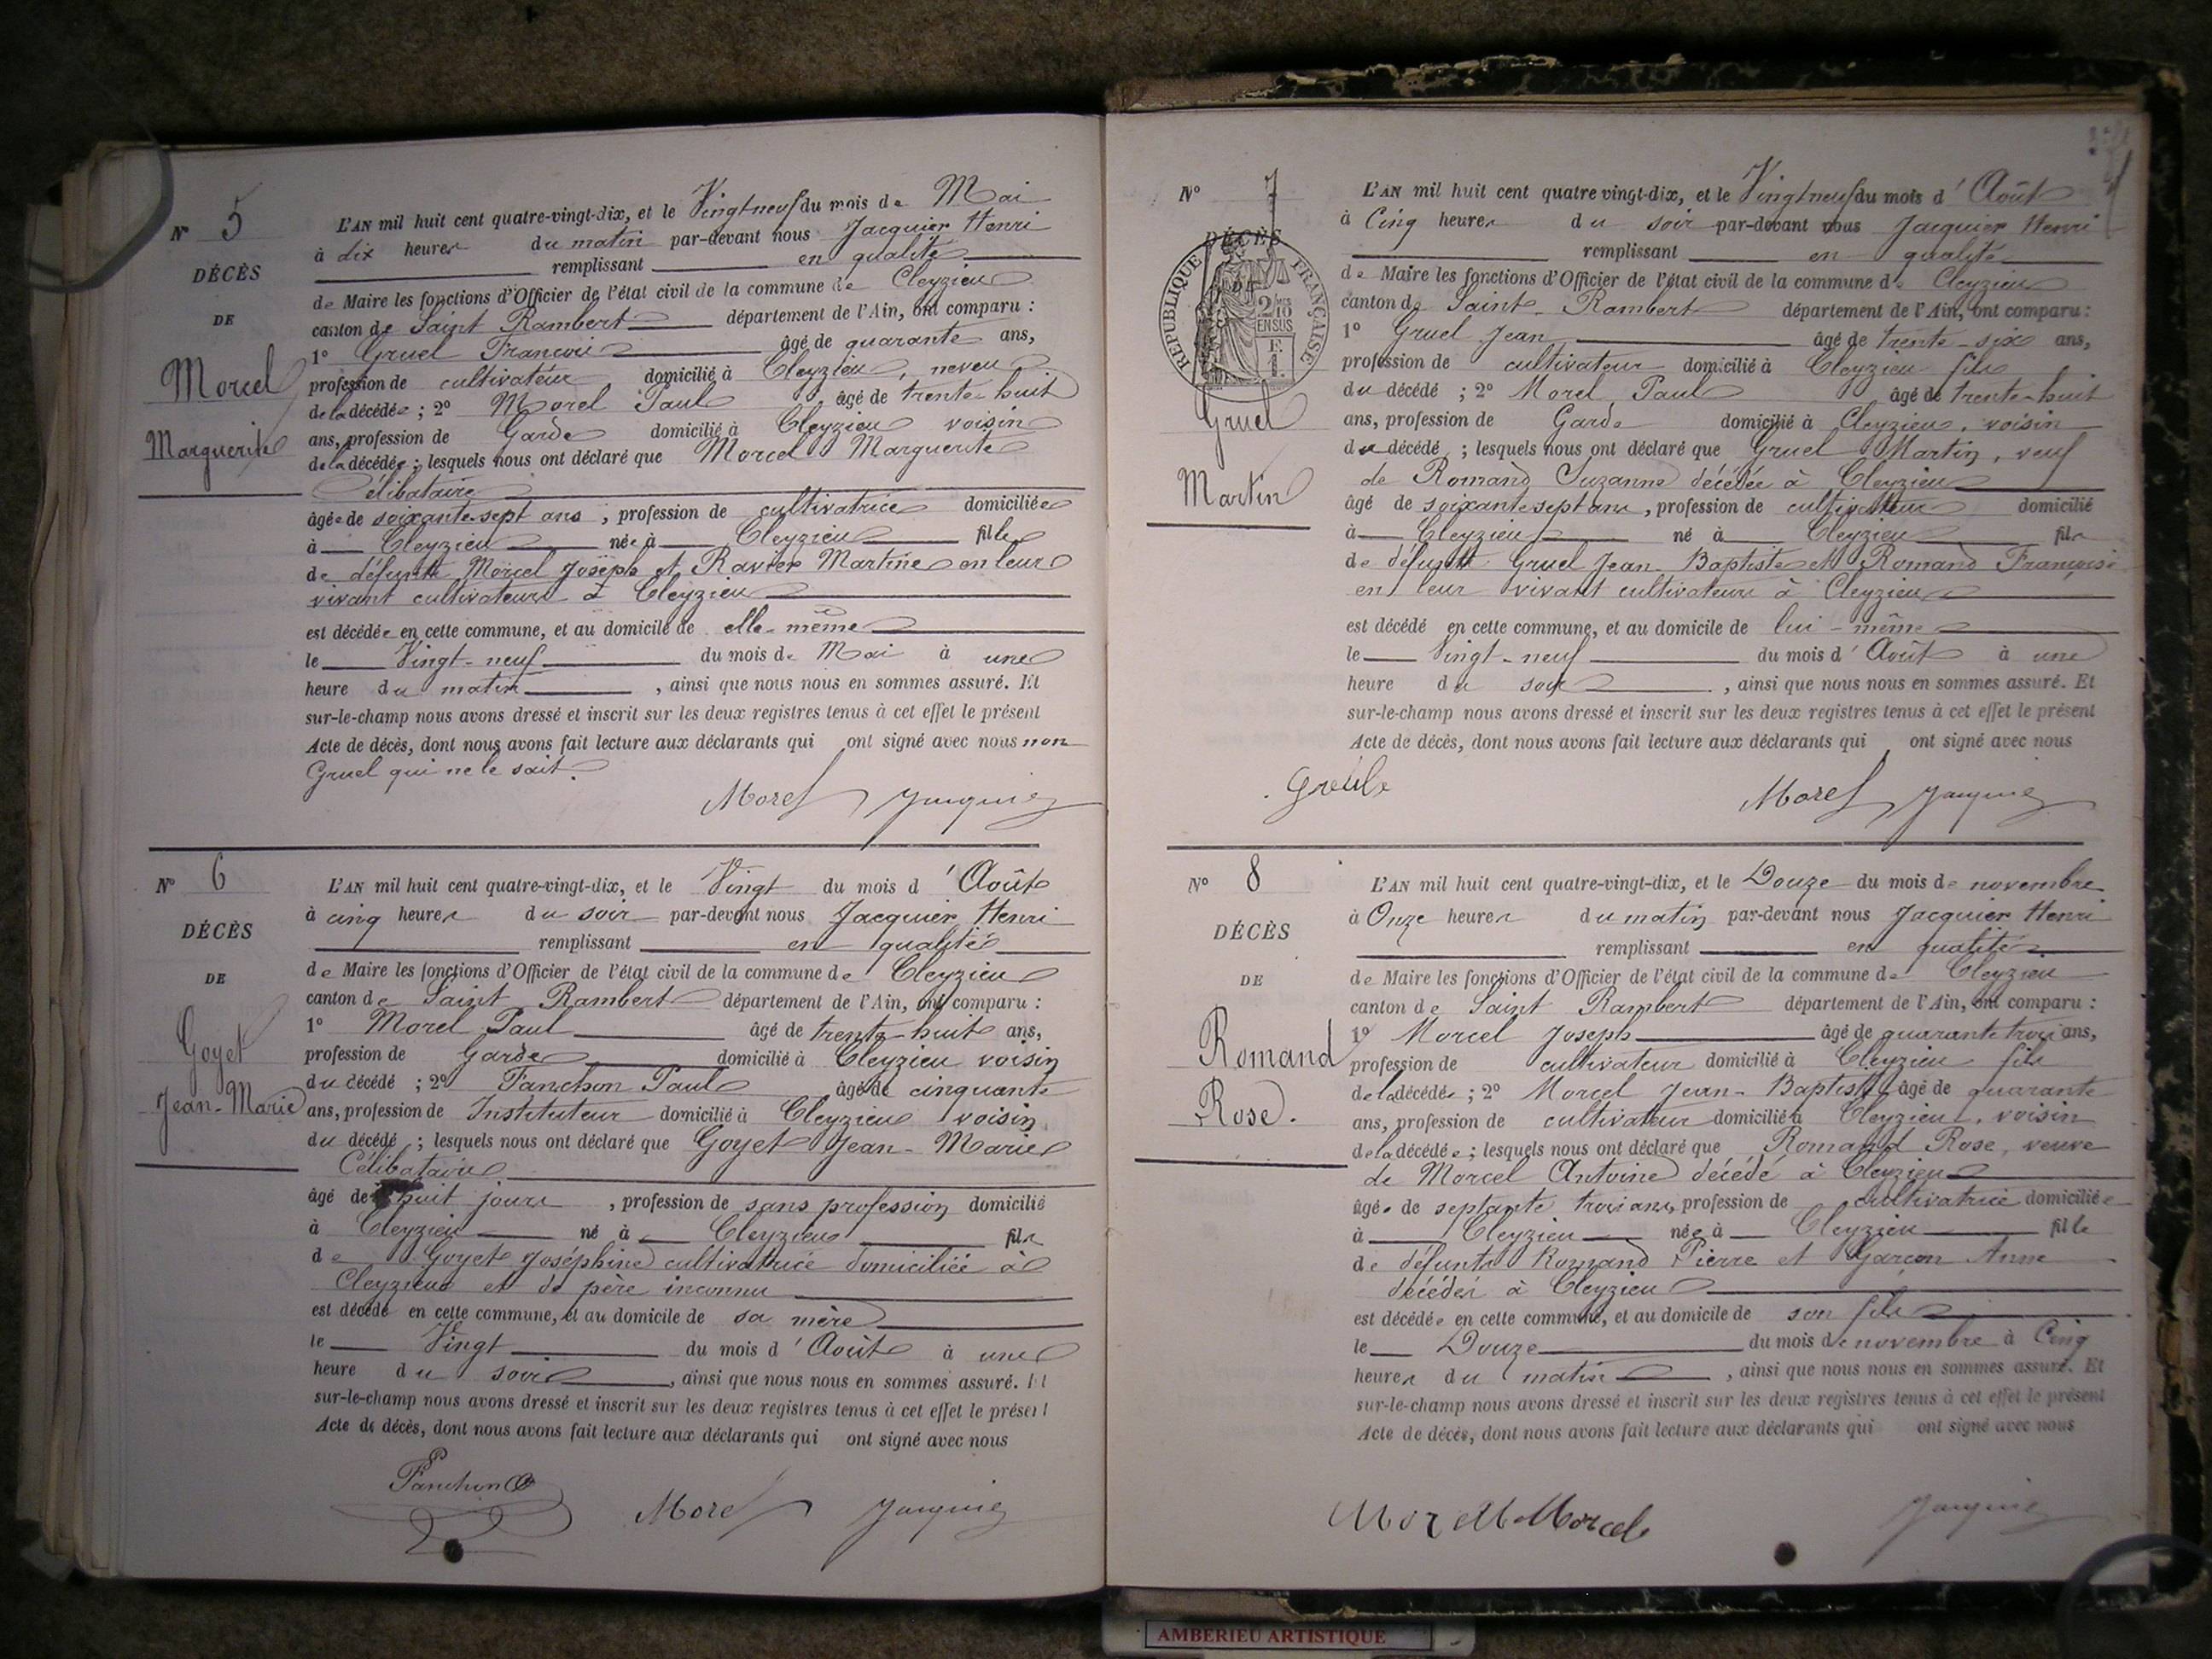 N° 5
DÉCÈS
DE
Morcel
Marguerite
L'AN mil huit cent quatre-vingt-dix, et le Vingt neuf du mois de Mai
à dix heures du matin par-devant nous Jacquier Henri
remplissant en qualité
de Maire les fonctions d'Officier de l'état civil de la commune de Cleyzieu
canton de Saint Rambert département de l'Ain, ont comparu :
1° Gruel François âgé de quarante ans,
profession de cultivateur domicilié à Cleyzieu, neveu
de la décédée ; 2° Morel Paul âgé de trente-huit
ans, profession de Garde domicilié à Cleyzieu voisin
de la décédée ; lesquels nous ont déclaré que Morcel Marguerite
Célibataire
âgée de soixante-sept ans, profession de cultivatrice domiciliée
à Cleyzieu née à Cleyzieu fille
de défunts Morcel Joseph et Ravier Martine en leur
vivant cultivateurs à Cleyzieu
est décédée en cette commune, et au domicile de elle-même
le Vingt-neuf du mois de Mai à une
heure du matin, ainsi que nous nous en sommes assuré. Et
sur-le-champ nous avons dressé et inscrit sur les deux registres tenus à cet effet le présent
Acte de décès, dont nous avons fait lecture aux déclarants qui ont signé avec nous non
Gruel qui ne le sait.
Morel Jacquier
N° 6
DÉCÈS
DE
Goyet
Jean-Marie
L'AN mil huit cent quatre-vingt-dix, et le Vingt du mois d'Août
à cinq heures du soir par-devant nous Jacquier Henri
remplissant en qualité
de Maire les fonctions d'Officier de l'état civil de la commune de Cleyzieu
canton de Saint Rambert département de l'Ain, ont comparu :
1° Morel Paul âgé de trente huit ans,
profession de Garde domicilié à Cleyzieu voisin
du décédé ; 2° Panchon Paul âgé de cinquante
ans, profession de Instituteur domicilié à Cleyzieu voisin
du décédé ; lesquels nous ont déclaré que Goyet Jean-Marie
Célibataire
âgé de huit jours, profession de sans profession domicilié
à Cleyzieu né à Cleyzieu fils
de Goyet Joséphine cultivatrice domiciliée à
Cleyzieu et de père inconnu
est décédé en cette commune, et au domicile de sa mère
le Vingt du mois d'Août à une
heure du soir, ainsi que nous nous en sommes assuré. Et
sur-le-champ nous avons dressé et inscrit sur les deux registres tenus à cet effet le présent
Acte de décès, dont nous avons fait lecture aux déclarants qui ont signé avec nous
Panchon Morel Jacquier
N° 7
DÉCÈS
DE
RÉPUBLIQUE FRANÇAISE
2/10 EN SUS
Gruel
Martin
L'AN mil huit cent quatre vingt-dix, et le Vingt neuf du mois d'Août
à Cinq heures du soir par-devant nous Jacquier Henri
remplissant en qualité
de Maire les fonctions d'Officier de l'état civil de la commune de Cleyzieu
canton de Saint-Rambert département de l'Ain, ont comparu :
1° Gruel Jean âgé de trente-six ans,
profession de cultivateur domicilié à Cleyzieu fils
du décédé ; 2° Morel Paul âgé de trente-huit
ans, profession de Garde domicilié à Cleyzieu, voisin
du décédé ; lesquels nous ont déclaré que Gruel Martin, veuf
de Romand Suzanne décédée à Cleyzieu
âgé de soixante sept ans, profession de cultivateur domicilié
à Cleyzieu né à Cleyzieu fils
de défunts Gruel Jean-Baptiste et Romand Françoise
en leur vivant cultivateurs à Cleyzieu
est décédé en cette commune, et au domicile de lui-même
le Vingt-neuf du mois d'Août à une
heure du soir, ainsi que nous nous en sommes assuré. Et
sur-le-champ nous avons dressé et inscrit sur les deux registres tenus à cet effet le présent
Acte de décès, dont nous avons fait lecture aux déclarants qui ont signé avec nous
Morel Jacquier
N° 8
DÉCÈS
DE
Romand
Rose.
L'AN mil huit cent quatre-vingt-dix, et le Douze du mois de novembre
à Onze heures du matin par-devant nous Jacquier Henri
remplissant en qualité
de Maire les fonctions d'Officier de l'état civil de la commune de Cleyzieu
canton de Saint Rambert département de l'Ain, ont comparu :
1° Morcel Joseph âgé de quarante trois ans,
profession de cultivateur domicilié à Cleyzieu fils
de la décédée ; 2° Morcel Jean-Baptiste âgé de quarante
ans, profession de cultivateur domicilié à Cleyzieu, voisin
de la décédée ; lesquels nous ont déclaré que Romand Rose, veuve
de Morcel Antoine décédé à Cleyzieu
âgée de septante trois ans, profession de cultivatrice domiciliée
à Cleyzieu née à Cleyzieu fille
de défunts Romand Pierre et Garcon Anne
décédés à Cleyzieu
est décédée en cette commune, et au domicile de son fils
le Douze du mois de novembre à Cinq
heures du matin, ainsi que nous nous en sommes assuré. Et
sur-le-champ nous avons dressé et inscrit sur les deux registres tenus à cet effet le présent
Acte de décès, dont nous avons fait lecture aux déclarants qui ont signé avec nous
Morcel Jacquier
AMBERIEU ARTISTIQUE